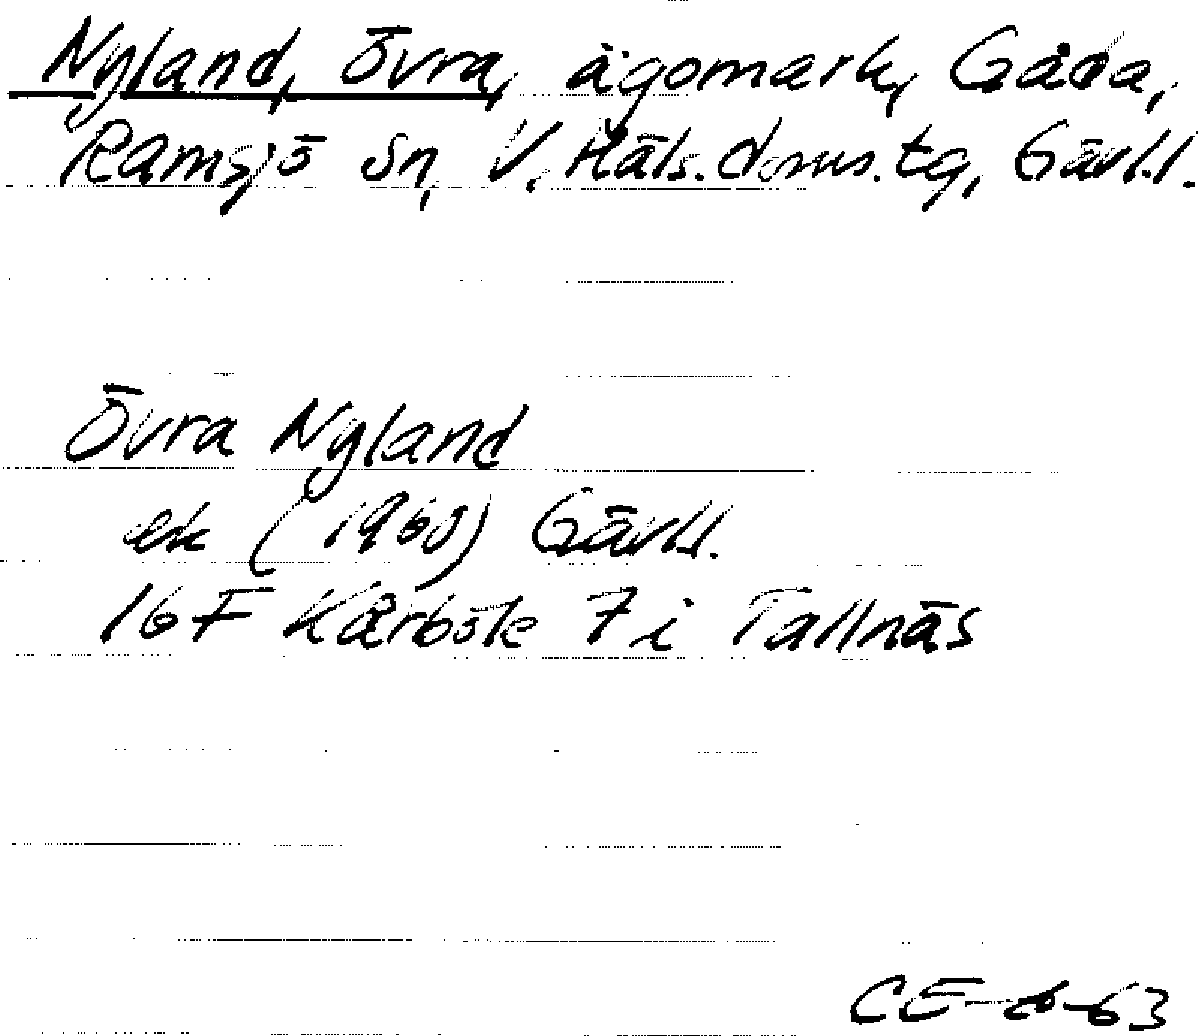 Nyland, Övra, ägomark, Gåda,
Ramsjö sn, V. Häls. doms. tg, Gävl.l.
Övra Nyland
ek (1960) Gävl.l.
16F Kårböle 7i Tallnäs